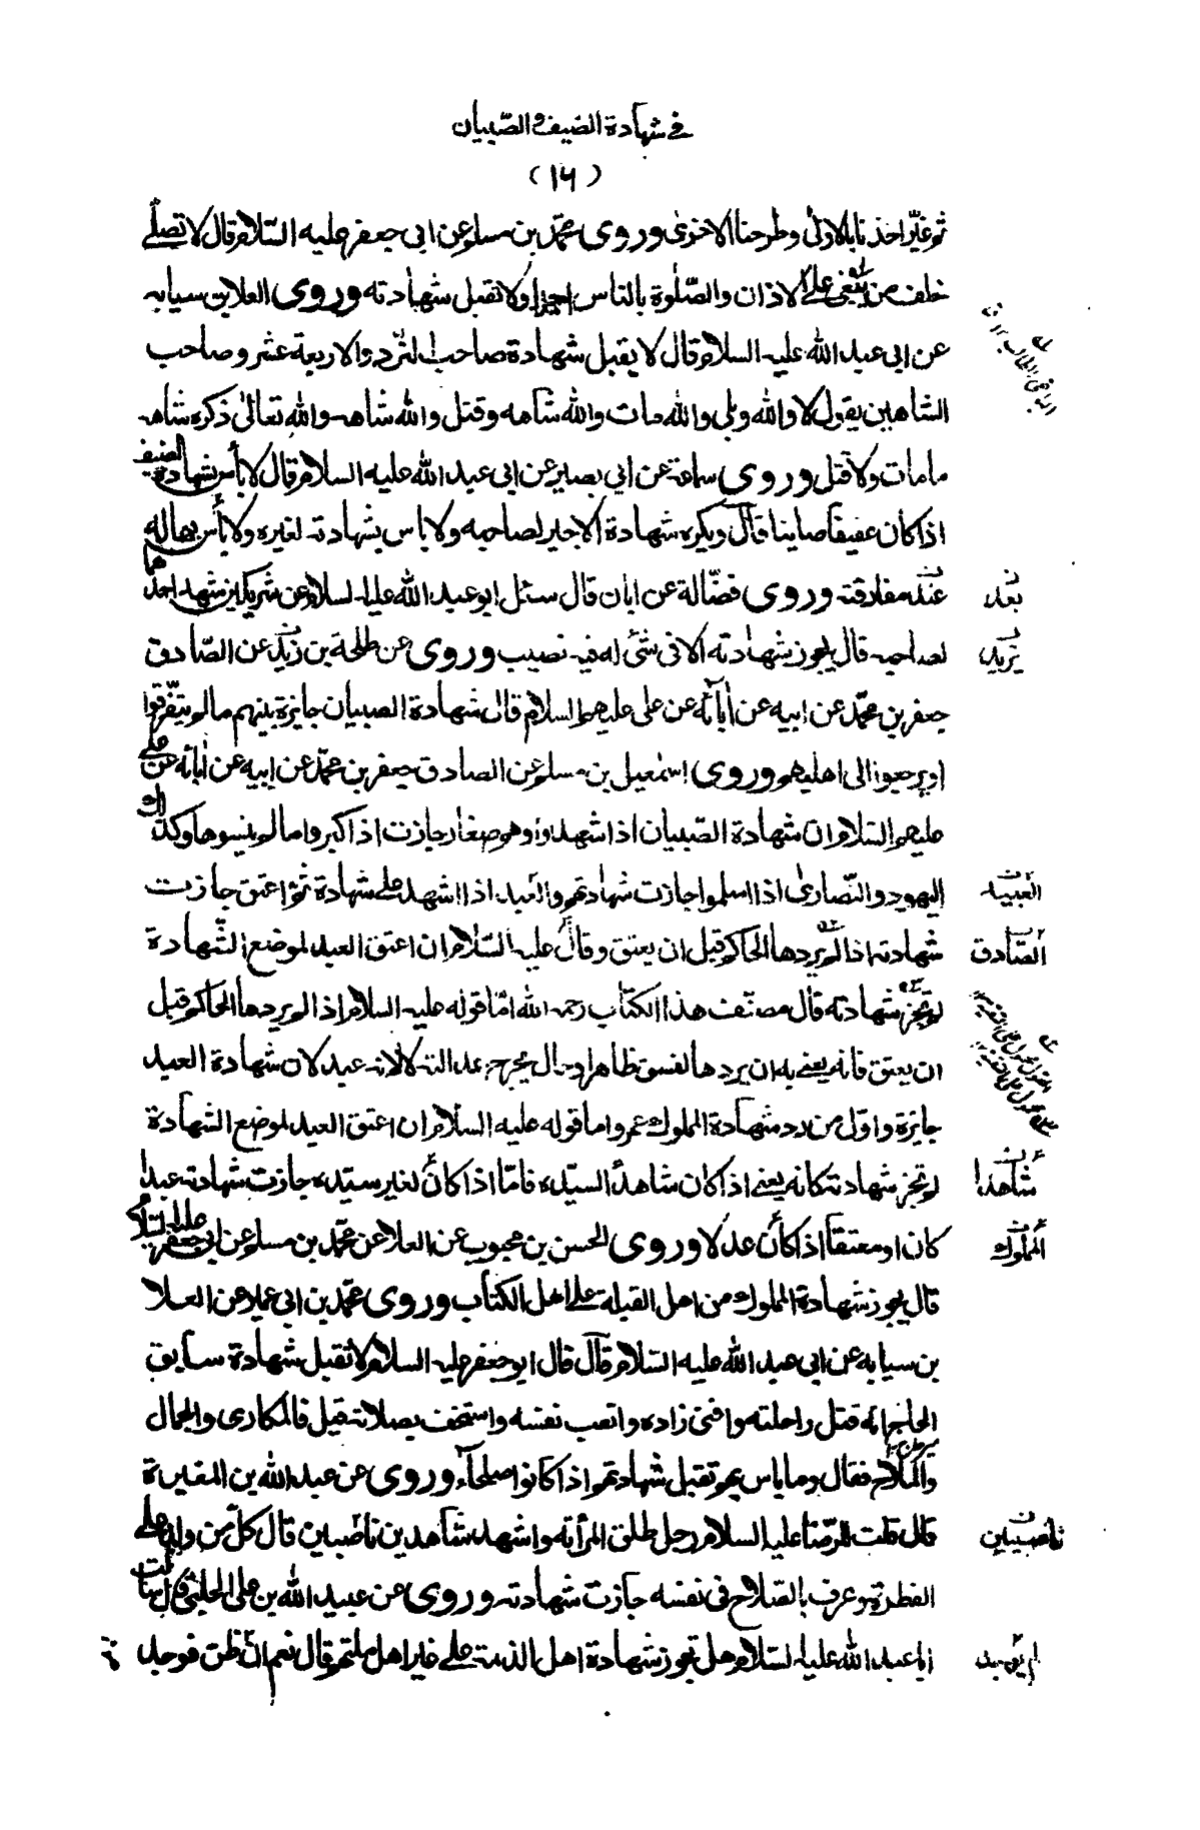 في شهادة الضيف و الصّبيان
(١٦)
ثم غيّر اخذنا بالاولى وطرحنا الاخرى وروى محمّد بن مسلم عن ابي جعفر عليه السّلام قال لا تصلّ
خلف من يبتغي على الاذان والصّلوة بالناس اجرا ولا تقبل شهادته وروى العلا بن سيابه
عن ابى عبد الله عليه السلام قال لا يقبل شهادة صاحب النرد والاربعة عشر وصاحب
الشاهين يقول لا والله وبلى والله مات والله شاهه وقتل والله شاهه والله تعالى ذكره شاهه
ما مات ولا قتل وروى سماعة عن ابي بصير عن ابى عبد الله عليه السلام قال لا بأس بشهادة الضيف
اذا كان عفيفا صاينا قال ويكره شهادة الاجير لصاحبه ولا باس بشهادته لغيره ولا بأس بها له
عند مفارقته وروى فضّالة عن ابان قال سئل ابو عبد الله عليه السلام عن شريكين شهد احدهما
بعد
لصاحبه قال يجوز شهادته الا في شئ له فيه نصيب وروى عن طلحة بن زيد عن الصّادق
يزيد
جعفر بن محمّد عن ابيه عن آبائه عن على عليهم السلام قال شهادة الصبيان جايزة بينهم ما لم يتفّرقوا
او يرجعوا الى اهليهم وروى اسمعيل بن مسلم عن الصادق جعفر بن محمّد عن ابيه عن آبائه عن على
عليهم السّلام ان شهادة الصّبيان اذا شهدوا وهو صغار جازت اذا كبروا ما لم ينسوها وكذلك
اليهود والنّصارى اذا اسلموا جازت شهادتهم والعبد اذا اشهد على شهادة ثم اعتق جازت
العبيد
شهادته اذا لم يردها الحاكم قبل ان يعتق وقال عليه السّلام ان اعتق العبد لموضع الشّهادة
الصّادق
لم تجز شهادته قال مصنّف هذا الكتاب رحمه الله امّا قوله عليه السلام اذا لم يردها الحاكم قبل
ان يعتق فانه يعنى به ان يردها لفسق ظاهر او حال يجرح عدالته لا لانه عبد لان شهادة العبد
جايزة واوّل من رد شهادة المملوك عمر واما قوله عليه السلام ان اعتق العبد لموضع الشهادة
لم تجز شهادته كانه يعنى اذا كان شاهداً لسيّده فامّا اذا كان لغير سيّده جازت شهادته عبدا
شاهدا
كان او معتقا اذا كان عدلا وروى الحسن بن محبوب عن العلا عن محمّد بن مسلم عن ابى جعفر عليه السلام
المملوك
قال يجوز شهادة المملوك من اهل القبلة على اهل الكتاب وروى محمّد بن ابى عمير عن العلا
بن سيابه عن ابى عبد الله عليه السّلام قال قال ابو جعفر عليه السلام لا تقبل شهادة سابق
الحاج انه قتل راحلته وافنى زاده واتعب نفسه واستخف بصلاته قيل فالمكارى والجمال
والملاح فقال وما باس بهم تقبل شهادتهم اذا كانوا صلحآء وروى عن عبد الله بن المغيرة
قال قلت للرّضا عليه السلام رجل طلق امرأته واشهد شاهدين ناصبين قال كلّ من ولد على
ناصبيين
الفطرة وعرف بالصّلاح في نفسه جازت شهادته وروى عن عبيد الله بن على الحلبى قال سألت
ابا عبد الله عليه السّلام هل تجوز شهادة اهل الذمة على غير اهل ملتهم قال نعم ان
لم يوجد